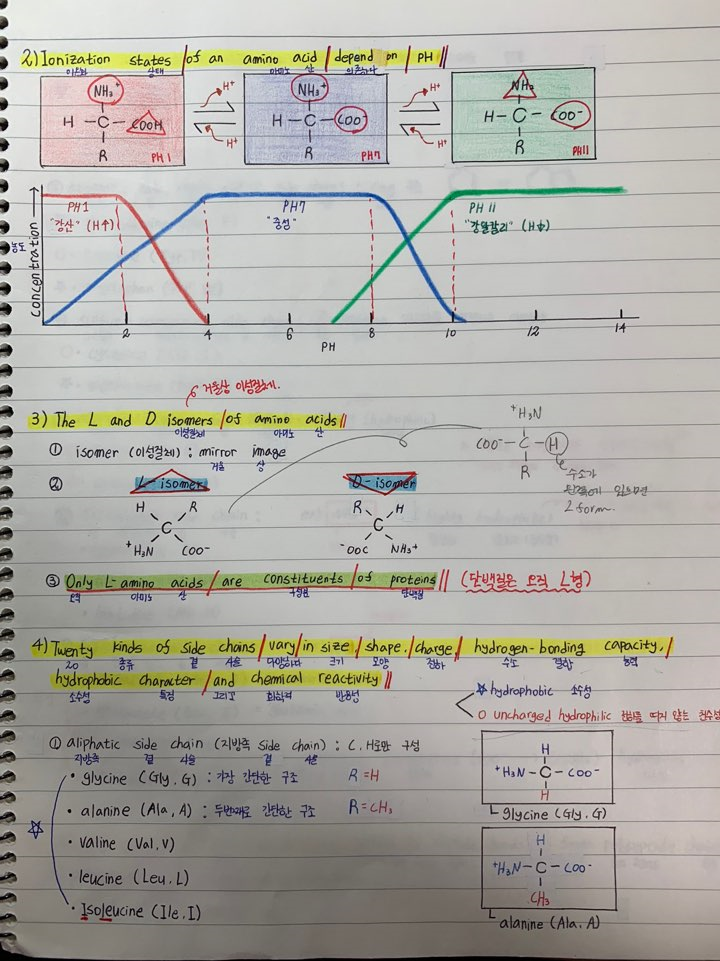 2) Ionization states / of an amino acid / depend on / PH //
이온화 상태 아미노 산 의존하다
NH₃⁺
H - C - COOH
R
PH 1
H⁺
H⁺
NH₃⁺
H - C - COO⁻
R
PH7
H⁺
H⁺
NH₂
H - C - COO⁻
R
PH11
PH1
"강산" (H↑)
PH7
"중성"
PH 11
"강알칼리" (H↓)
농도
concentration
2 4 6 8 10 12 14
PH
거울상 이성질체.
3) The L and D isomers / of amino acids //
이성질체 아미노 산
① isomer (이성질체) : mirror image
거울 상
⁺H₃N
COO⁻ - C - H
R
수소가
왼쪽에 있으면
L form.
②
L-isomer
H R
C
⁺H₃N COO⁻
D-isomer
R H
C
⁻OOC NH₃⁺
③ Only L-amino acids / are constituents / of proteins // (단백질은 오직 L형)
오직 아미노 산 구성원 단백질
4) Twenty kinds of side chains / vary / in size / shape. / charge, / hydrogen-bonding capacity, /
20 종류 곁 사슬 다양하다 크기 모양 전하 수소 결합 능력
hydrophobic character / and chemical reactivity //
소수성 특징 그리고 화학적 반응성
☆ hydrophobic 소수성
O uncharged hydrophilic 전하를 띠지 않는 친수성
① aliphatic side chain (지방족 side chain) : C, H로만 구성
지방족 곁 사슬 곁 사슬
☆
• glycine (Gly, G) : 가장 간단한 구조 R = H
• alanine (Ala, A) : 두번째로 간단한 구조 R = CH₃
• valine (Val, V)
• leucine (Leu, L)
• Isoleucine (Ile, I)
H
⁺H₃N - C - COO⁻
H
glycine (Gly, G)
H
⁺H₃N - C - COO⁻
CH₃
alanine (Ala, A)